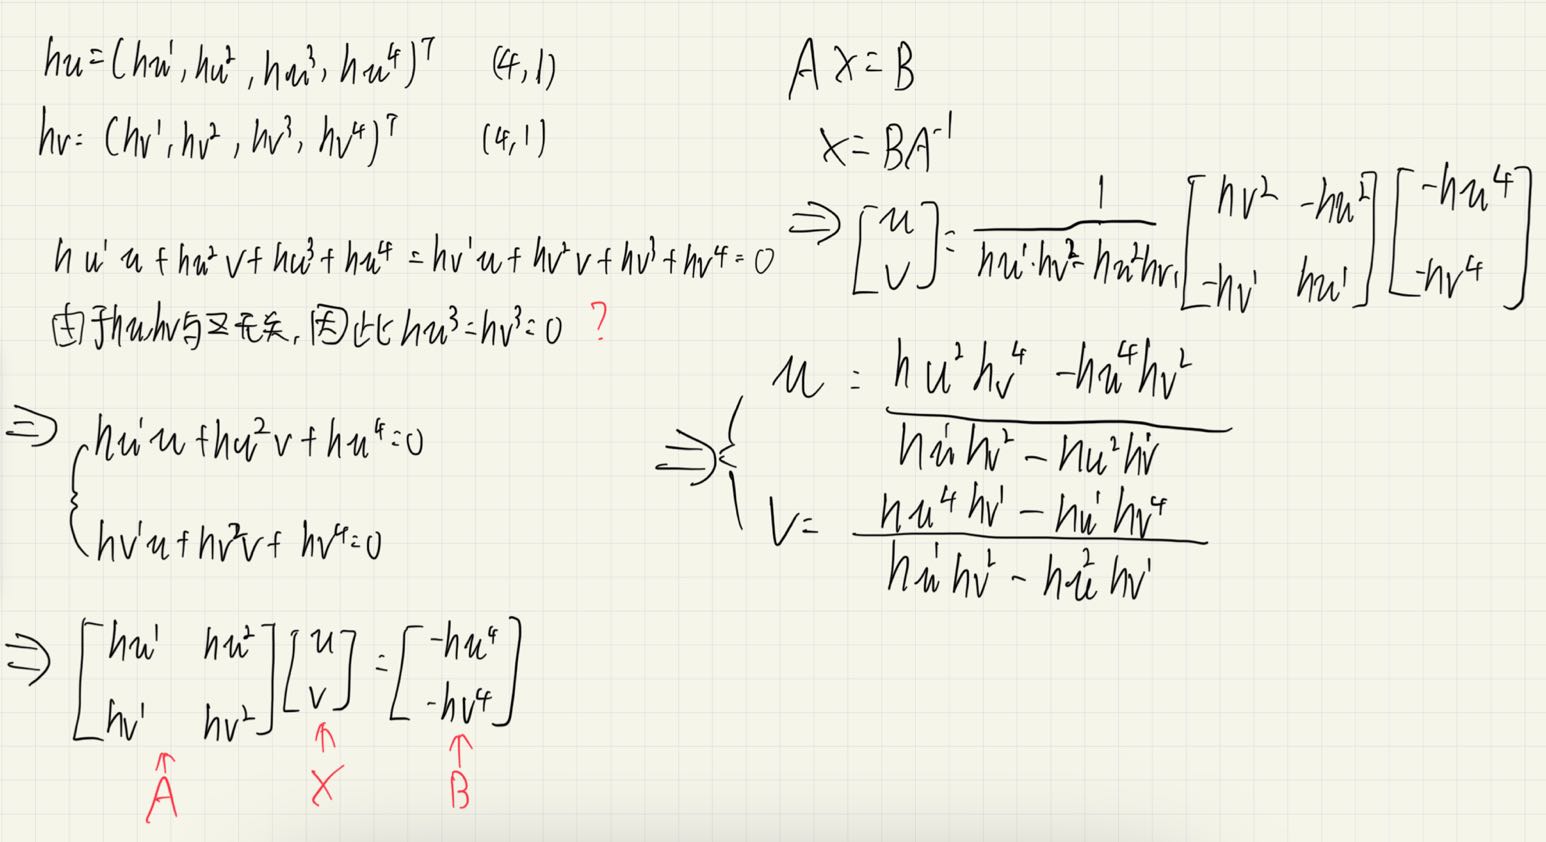 hu=(hu¹,hu²,hu³,hu⁴)ᵀ (4,1)
hv=(hv¹,hv²,hv³,hv⁴)ᵀ (4,1)
hu¹u+hu²v+hu³+hu⁴=hv¹u+hv²v+hv³+hv⁴=0
由于hu,hv与z无关,因此hu³=hv³=0 ?
⇒ { hu¹u+hu²v+hu⁴=0
hv¹u+hv²v+hv⁴=0
⇒ [hu¹ hu²] [u] = [-hu⁴]
[hv¹ hv²] [v] [-hv⁴]
↑ ↑ ↑
A X B
AX=B
X=BA⁻¹
⇒ [u] = 1 [hv² -hu²] [-hu⁴]
[v] hu¹·hv²-hu²hv¹ [-hv¹ hu¹] [-hv⁴]
⇒ { u = hu²hv⁴-hu⁴hv²
hu¹hv²-hu²hv¹
v= hu⁴hv¹-hu¹hv⁴
hu¹hv²-hu²hv¹